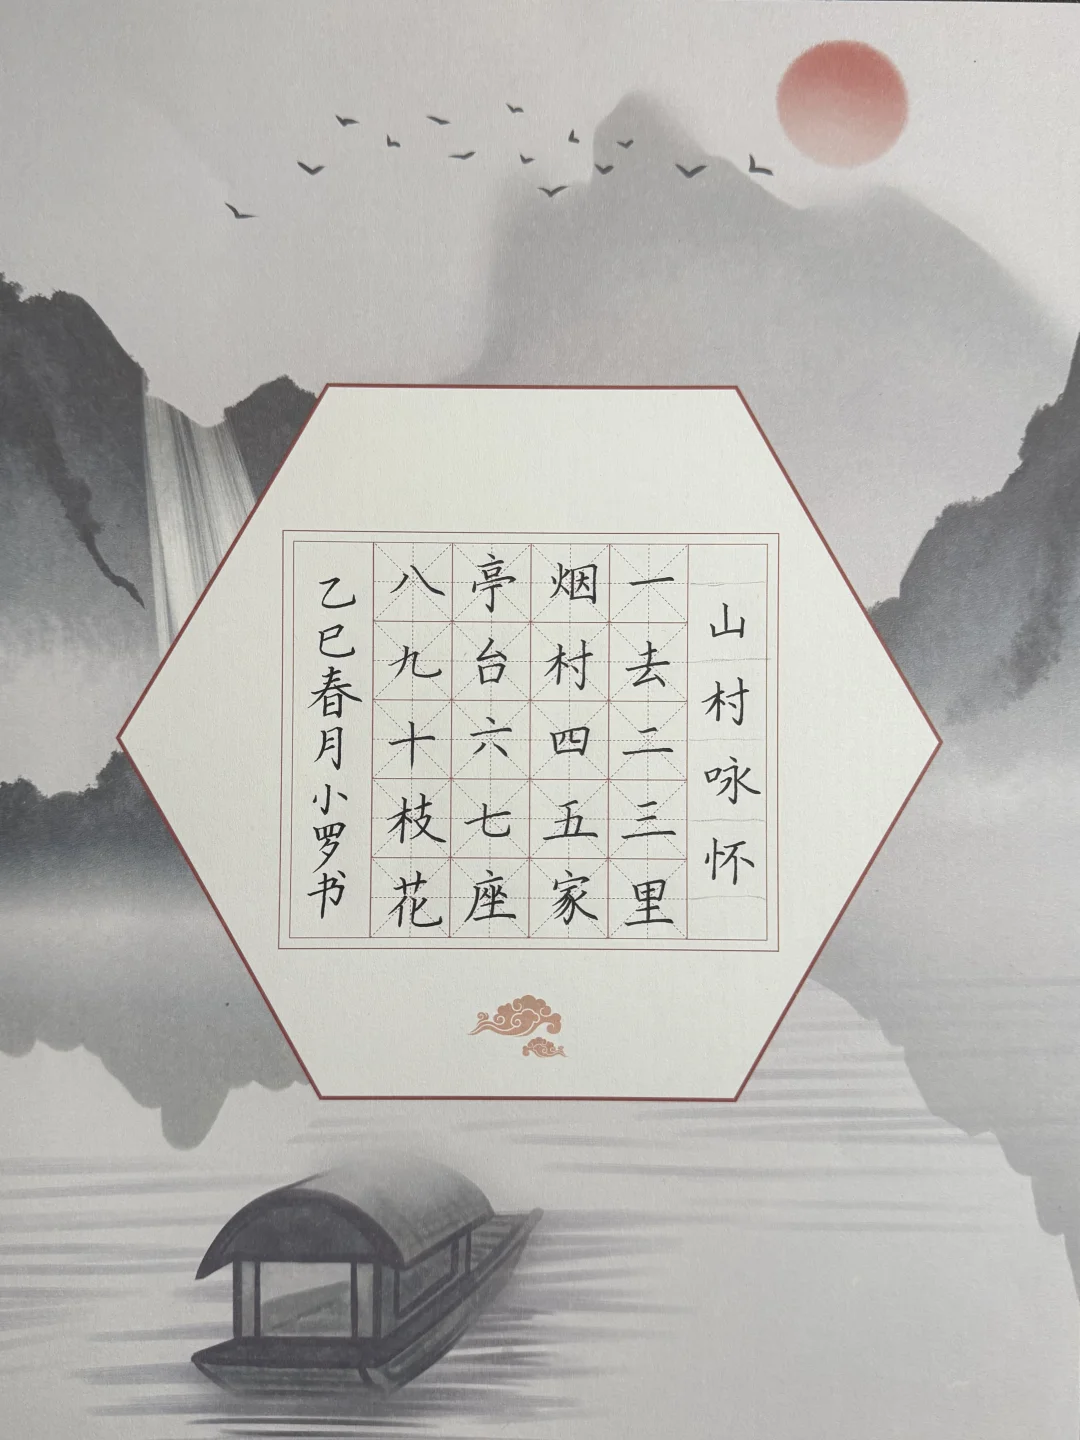 山村咏怀
一去二三里
烟村四五家
亭台六七座
八九十枝花
乙巳春月小罗书